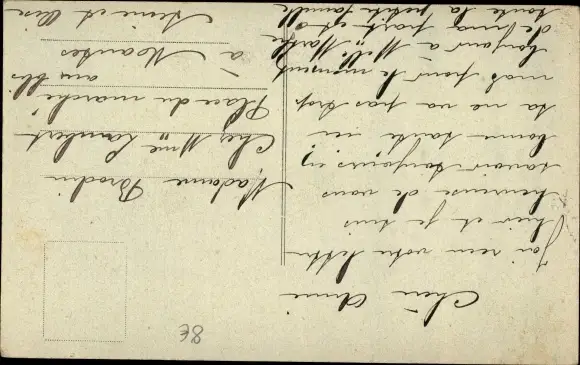 Chère Amie
J'ai recu votre lettre
hier et je suis
heureuse de vous
savoir toujours en
bonne santé ici
sa ne va pas trop
mal pour le moment
bonjour à Melle Marthe
de ma part et à
toute la petite famille
Madame Brodin
Chez Mme Lambert
Place du marché
aux blés
à Mantes
Seine et Oise
8€